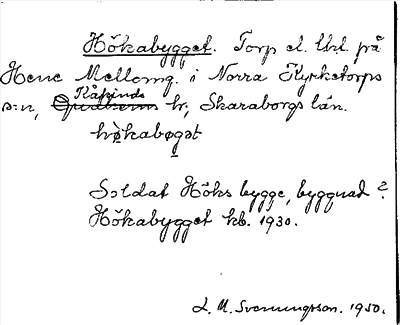 Hökabygget. Torp el. lht. på
Hene Mellomg. i Norra Kyrketorps
s:n, Kåkinds hr, Skaraborgs län.
hökabøgət
Soldat Höks bygge, byggnad?
Hökabygget kb. 1930.
L. M. Svenungsson. 1950.